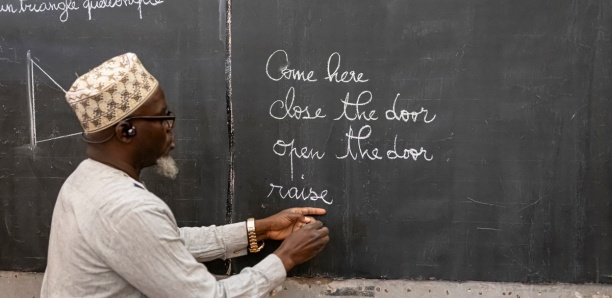 un triangle quelconque
Come here
close the door
open the door
raise